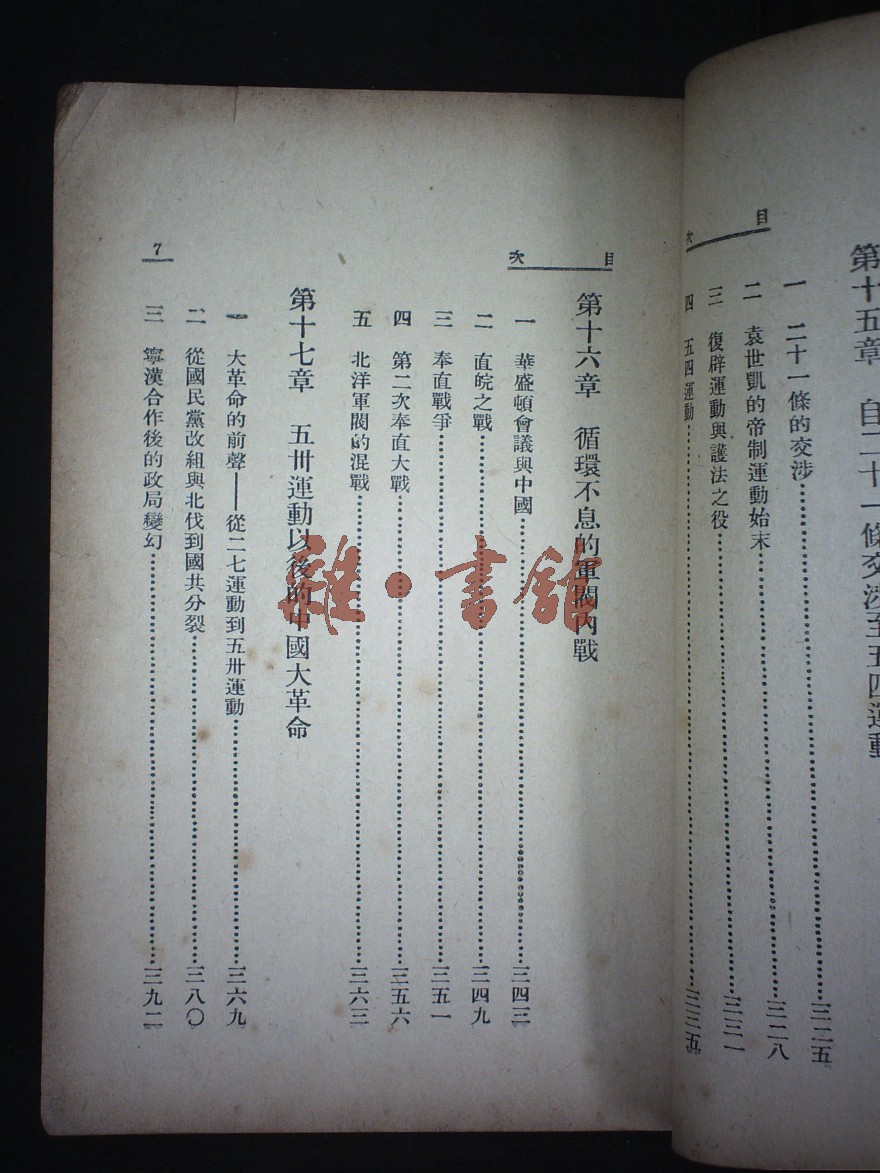 目次
第十五章　自二十一條交涉至五四運動
一　二十一條的交涉……三二五
二　袁世凱的帝制運動始末……三二八
三　復辟運動與護法之役……三三一
四　五四運動……三三五
目次
第十六章　循環不息的軍閥內戰
一　華盛頓會議與中國……三四三
二　直皖之戰……三四九
三　奉直戰爭……三五一
四　第二次奉直大戰……三五六
五　北洋軍閥的混戰……三六三
第十七章　五卅運動以後的中國大革命
一　大革命的前聲——從二七運動到五卅運動……三六九
二　從國民黨改組與北伐到國共分裂……三八〇
三　寧漢合作後的政局變幻……三九二
7
雜·書館